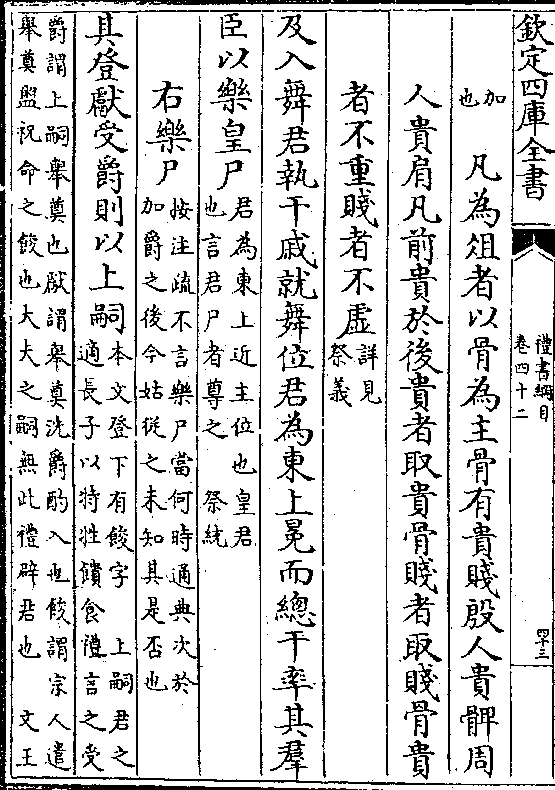 欽定四庫全書
禮書綱目
卷四十二
四十三
加
也
凡為俎者以骨為主骨有貴賤殷人貴髀周
人貴肩凡前貴於後貴者取貴骨賤者取賤骨貴
者不重賤者不虛
詳見
祭義
及入舞君執干戚就舞位君為東上冕而總干率其羣
臣以樂皇尸
君為東上近主位也皇君
也言君尸者尊之　祭統
右樂尸
按注疏不言樂尸當何時通典次於
加爵之後今姑從之未知其是否也
其登獻受爵則以上嗣
本文登下有餕字　上嗣君之
適長子以特牲饋食禮言之受
爵謂上嗣舉奠也獻謂舉奠洗爵酌入也餕謂宗人遣
舉奠盥祝命之餕也大夫之嗣無此禮辟君也　文王